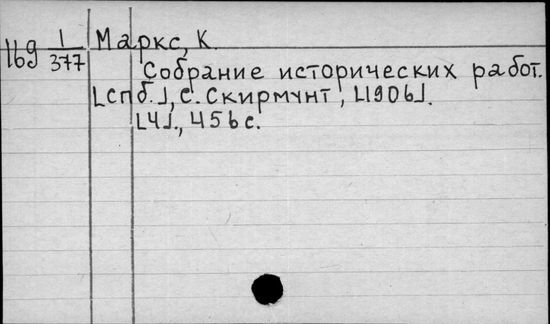 169 1/377
Маркс, К.
Собрание исторических работ.
[спб.], С. Скирмунт, [1906].
[4]., 456 с.